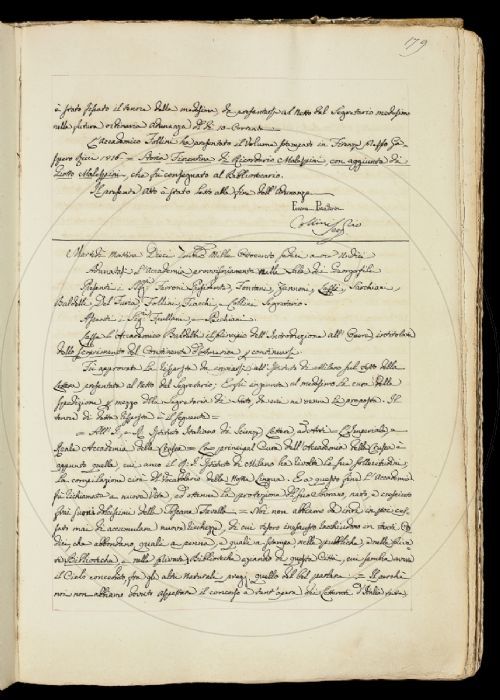 179
è stato fissato il tenore della medesima da presentarsi al Netto dal Segretario medesimo
nella futura ordinaria Adunanza de' 10 Corrente
L'Accademico Follini ha presentato il Volume stampato in Firenze presso Gas
pero Ricci 1816 = Storia Fiorentina di Ricordano Malespini, con aggiunta di
Giotto Malespini, che fù consegnato al Bibliotecario.
Il presente Atto è stato letto alla fine dell'Adunanza
Collini Seg.rio
Martedì Mattina Dieci Mille Ottocento sedici a ore Undici
Adunatasi l'Accademia provvisoriamente nella Sala dei Georgofili
Presenti i Sigg.ri Ferroni Presidente, Fontani, Zannoni, Lessi, Sarchiani,
Baldelli, Del Furia, Follini, Fiacchi, e Collini Segretario.
Assenti i Sigg.ri
Lesse l'Accademico Baldelli il principio dell'Introduzione all'Opera intitolata
dello scoprimento del Continente d' e continuerà
Fù approvata la Risposta da inviarsi all'Istituto di Milano sul della
Lettera presentata al Netto dal Segretario; E si è ingiunta al medesimo la cura della
spedizione per mezzo della Segreteria di Stato, da cui ne venne la proposta. Il
tenore di detta Risposta è il seguente =
= All'I. e R. Istituto Italiano di Scienze Lettere, ed Arti = L'Imperiale e
Reale Accademia della Crusca = La principal Cura dell'Accademia della Crusca è
appunto quella, cui anco il R. I. Istituto di Milano ha rivolta la sua sollecitudine,
la compilazione cioè del Vocabolario della Nostra Lingua. E a questo fine l'Accademia
fù richiamata a nuova Vita, ed ottenne la protezione del suo Sovrano, nato e cresciuto
frai suoni dolcissimi della Toscana favella = Noi non abbiamo da indi in poi ces-
sato mai di accumulare nuove ricchezze di cui tesoro inesausto racchiudono in vari Co-
dici, che abbondano, quali a penna, e quali a stampa nelle pubbliche, e nelle priva
te Biblioteche e nelle private Biblioteche ezandio di questa Città, cui sembra avere
il Cielo conceduto, fra gli altri Naturali pregi, quello del bel parlare = Il perchè
noi non abbiamo dovuto aspettare il concorso a tant'opera dei Letterati d'Italia